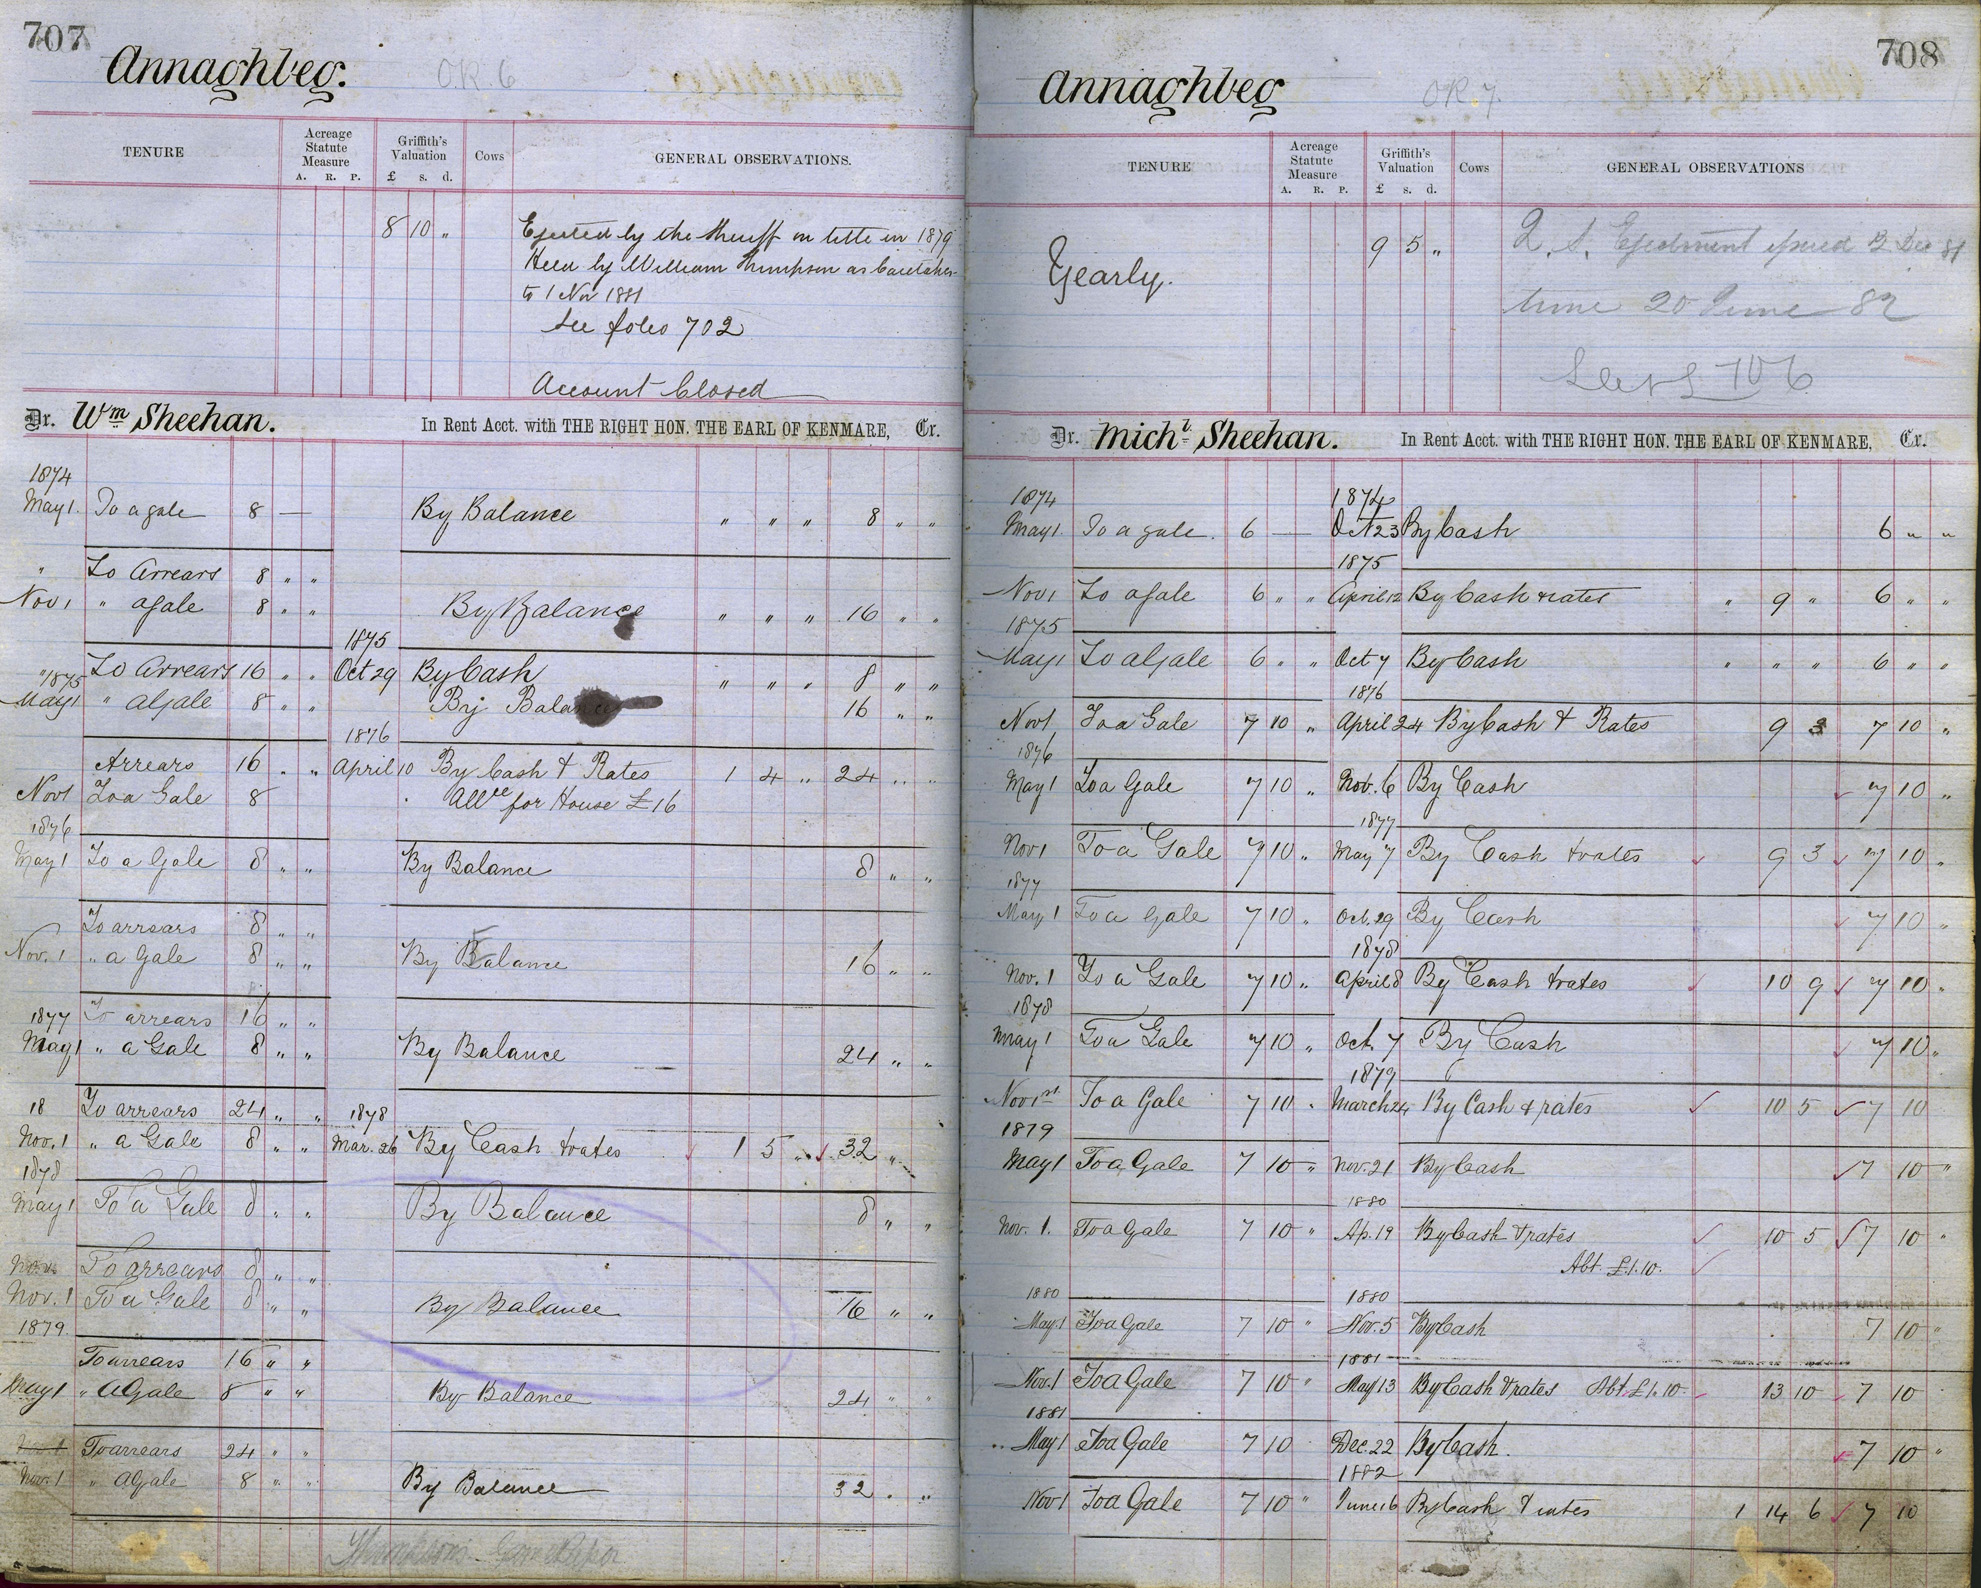 707
Annaghbeg.
O.R. 6
TENURE
Acreage Statute Measure
A. R. P.
Griffith's Valuation
£ s. d.
Cows
GENERAL OBSERVATIONS.
8 10 „
Ejected by the Sheriff on title in 1879
Held by William Thompson as Caretaker
to 1 Nov 1881
See folio 702
Account Closed
Dr. Wm Sheehan. In Rent Acct. with THE RIGHT HON. THE EARL OF KENMARE, Cr.
1874
May 1. To a gale 8 — By Balance „ „ „ 8 „ „
„ To Arrears 8 „ „
Nov 1 „ a gale 8 „ „ By Balance „ „ „ 16 „ „
1875
„ To Arrears 16 „ „ Oct 29 By Cash „ „ „ 8 „ „
1875
May 1 „ a Gale 8 „ „ By Balance 16 „ „
1876
Arrears 16 „ „ April 10 By Cash & Rates 1 4 „ 24 „ „
Nov 1 To a Gale 8 Allce for House £16
1876
May 1 To a Gale 8 „ „ By Balance 8 „ „
To arrears 8 „ „
Nov. 1 „ a Gale 8 „ „ By Balance 16 „ „
1877 To arrears 16 „ „
May 1 „ a Gale 8 „ „ By Balance 24 „ „
18 To arrears 24 „ „ 1878
Nov. 1 „ a Gale 8 „ „ Mar. 26 By Cash & rates 1 5 „ 32 „ „
1878
May 1 To a Gale 8 „ „ By Balance 8 „ „
Nov. To arrears 8 „ „
Nov. 1 To a Gale 8 „ „ By Balance 16 „ „
1879
To arrears 16 „ „
May 1 „ a Gale 8 „ „ By Balance 24 „ „
Nov 1 To arrears 24 „ „
Nov. 1 „ a Gale 8 „ „ By Balance 32 „ „
708
Annaghbeg
OR. 7.
TENURE
Acreage Statute Measure
A. R. P.
Griffith's Valuation
£ s. d.
Cows
GENERAL OBSERVATIONS
Yearly.
9 5 „
Q. S. Ejectment issued 13 Dec 81
time 20 June 82
706
Dr. Michl Sheehan. In Rent Acct. with THE RIGHT HON. THE EARL OF KENMARE, Cr.
1874 1874
May 1. To a gale. 6 — Oct 23 By Cash 6 „ „
1875
Nov 1 To a gale 6 „ „ April 12 By Cash & rates „ 9 „ 6 „ „
1875
May 1 To a Gale 6 „ „ Oct 7 By Cash „ „ „ 6 „ „
1876
Nov 1 To a Gale 7 10 „ April 24 By Cash & Rates 9 3 7 10 „
1876
May 1 To a Gale 7 10 „ Nov. 6 By Cash 7 10 „
1877
Nov 1 To a Gale 7 10 „ May 7 By Cash & rates 9 3 7 10 „
1877
May 1 To a Gale 7 10 „ Oct. 29 By Cash 7 10 „
1878
Nov. 1 To a Gale 7 10 „ April 8 By Cash & rates 10 9 7 10 „
1878
May 1 To a Gale 7 10 „ Oct. 7 By Cash 7 10 „
1879
Nov 1st To a Gale 7 10 „ March 24 By Cash & rates 10 5 7 10
1879
May 1 To a Gale 7 10 „ Nov. 21 By Cash 7 10 „
1880
Nov. 1. To a Gale 7 10 „ Ap. 19 By Cash & rates 10 5 7 10 „
Abt. £1.10.
1880 1880
May 1 To a Gale 7 10 „ Nov. 5 By Cash 7 10 „
1881
Nov. 1 To a Gale 7 10 „ May 13 By Cash & rates Abt. £1.10. 13 10 7 10
1881
May 1 To a Gale 7 10 Dec. 22 By Cash. 7 10 „
1882
Nov 1 To a Gale 7 10 „ June 16 By Cash & rates 1 14 6 7 10